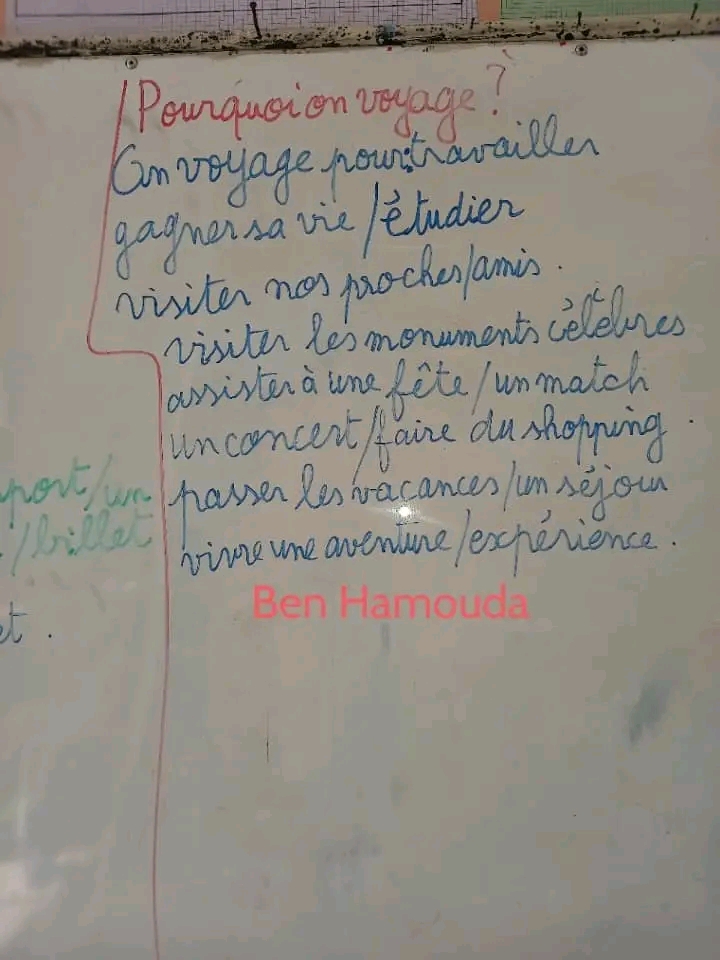 Pourquoi on voyage ?
On voyage pour : travailler
gagner sa vie / étudier
visiter nos proches / amis .
visiter les monuments célèbres
assister à une fête / un match
un concert / faire du shopping .
passer les vacances / un séjour
vivre une aventure / expérience .
port / un
/ billet
et .
Ben Hamouda